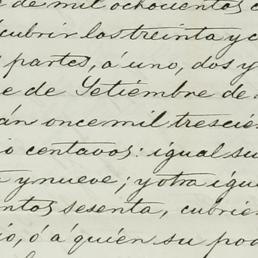 de mil ochocientos
cubrir los treinta y c
partes, á uno, dos y
e de Setiembre de
án once mil trescie
io centavos: igual su
y nueve; y otra igu
entos sesenta, cubrie
io, ó á quién su pod